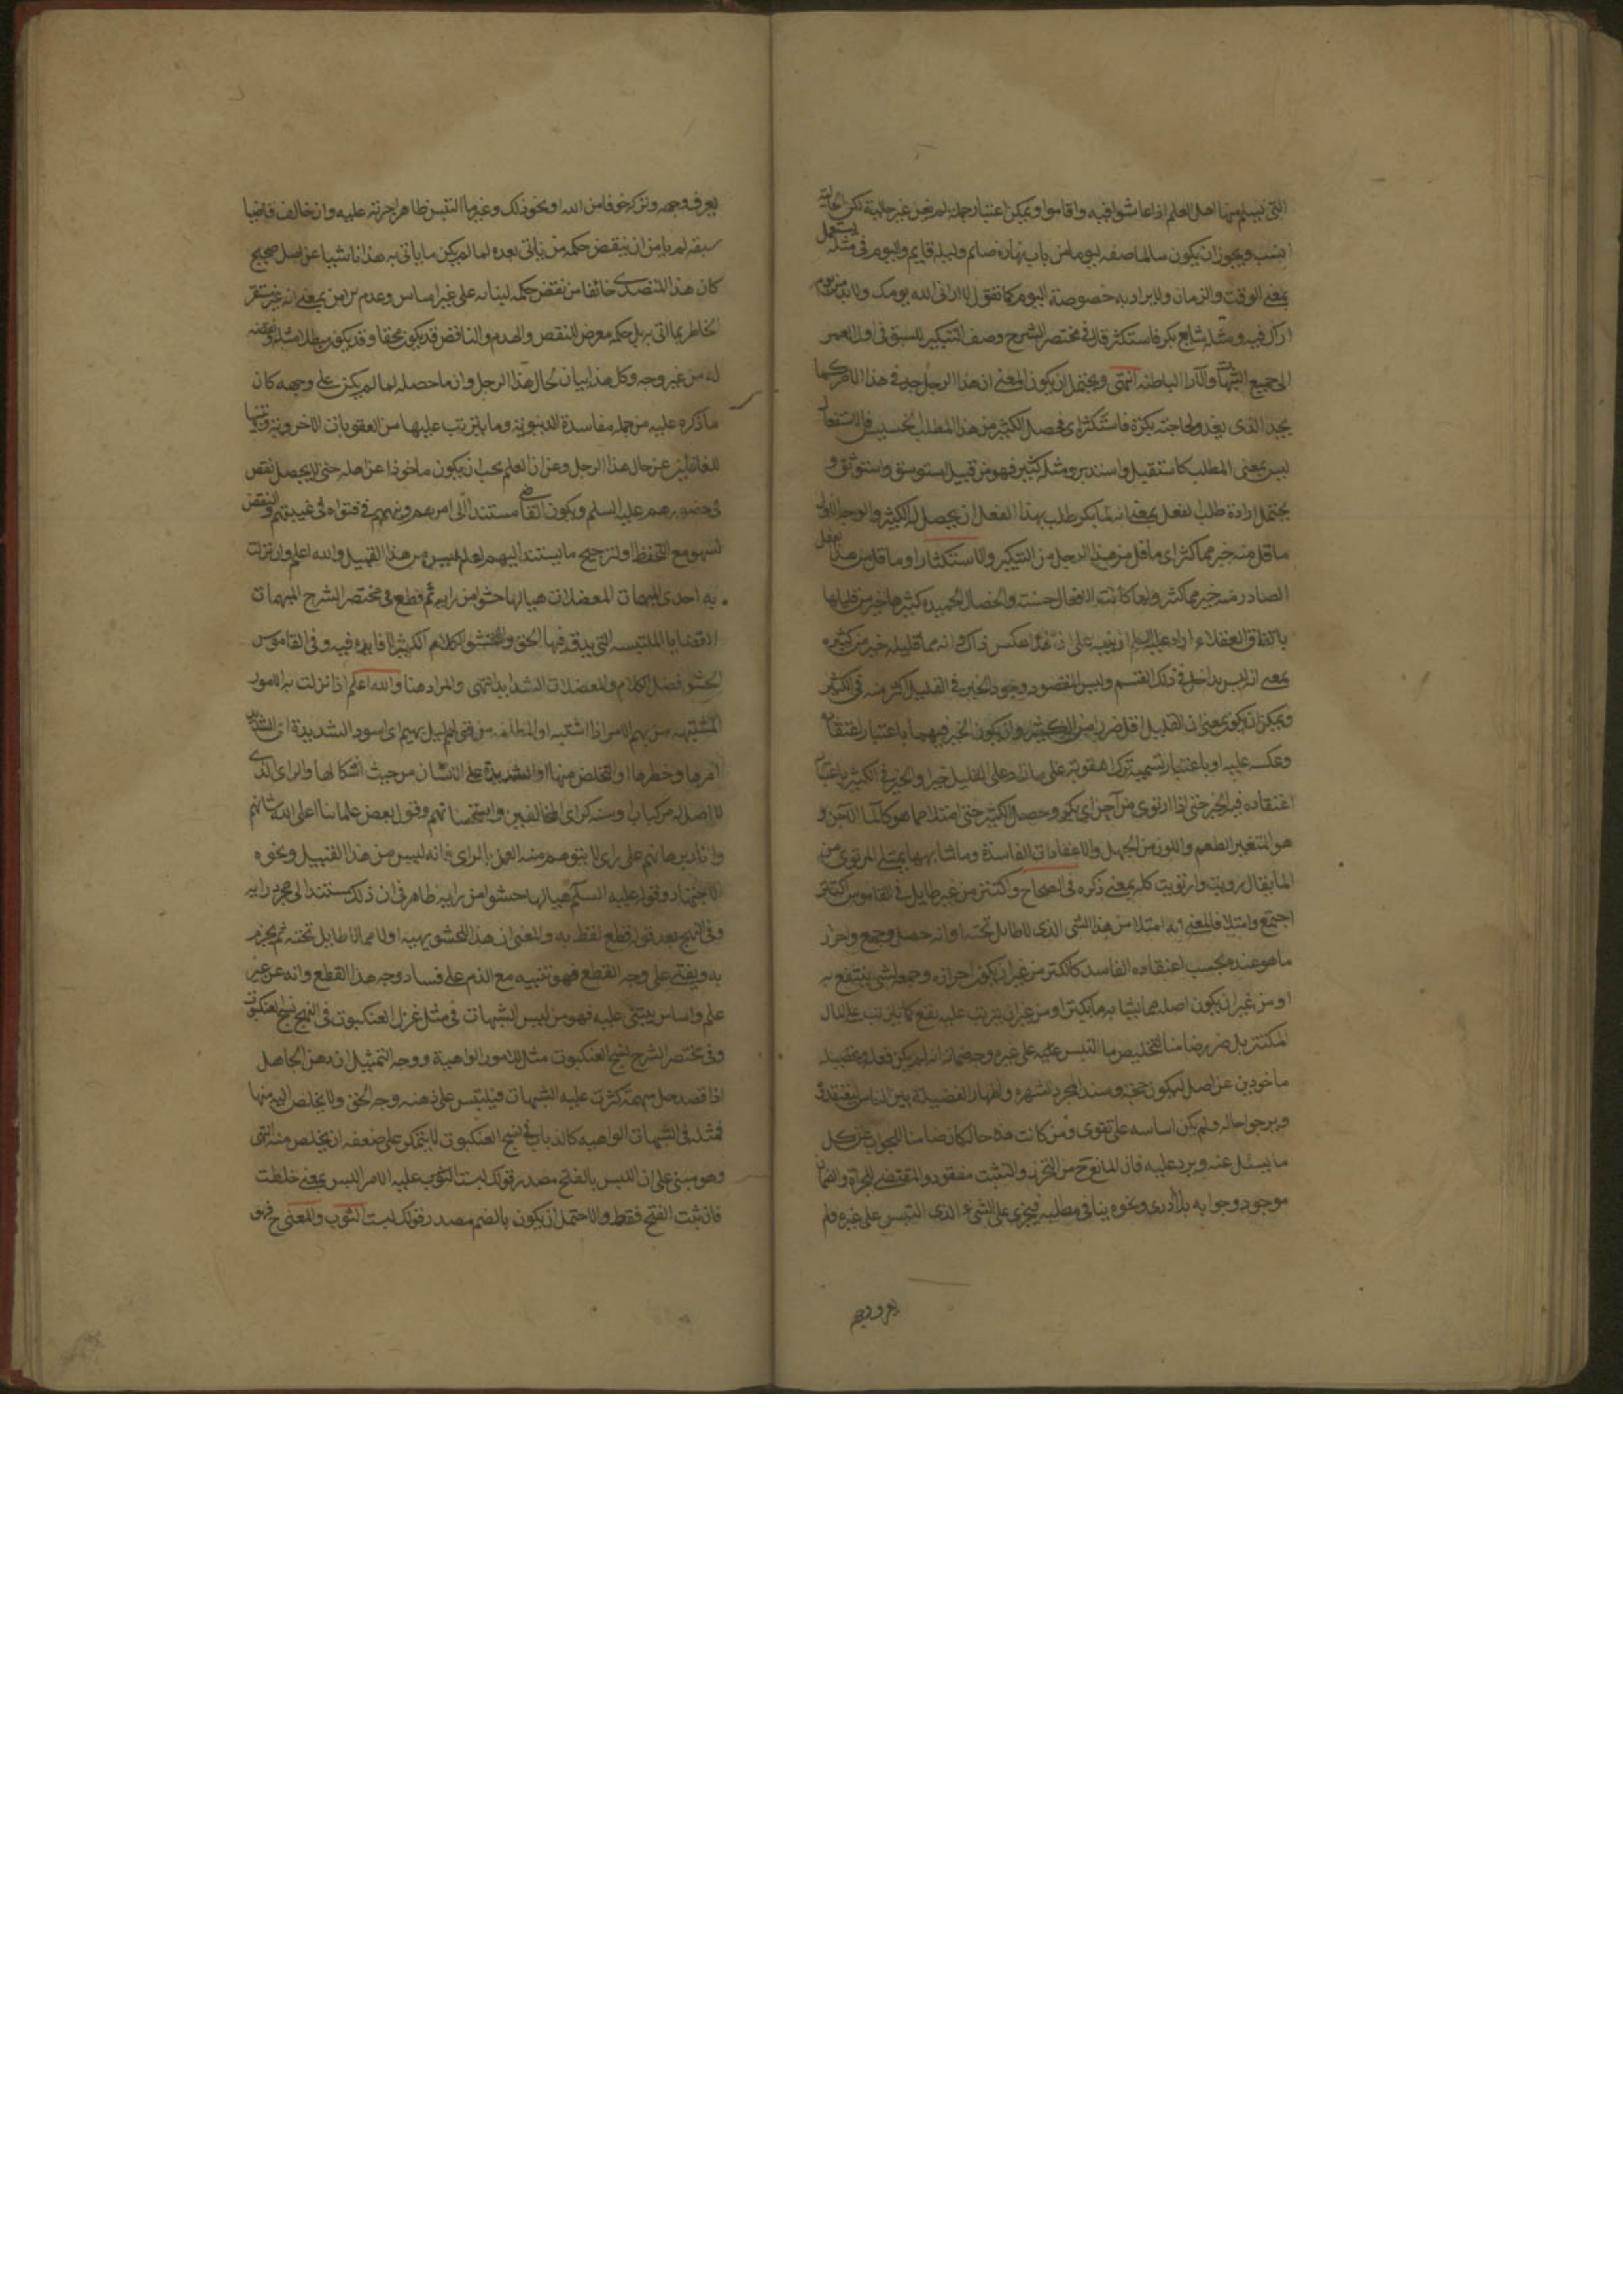 التى يسلم منها اهل العلم اذا عاشوا فيه واقاموا ويمكن اعتبار جملة لم يغن غير حالية لكن الحالية
انسب ويجوز ان يكون سالما صفه ليوما من باب نهاره صائم وليله قايم واليوم فى مثله يستعمل
بمعنى الوقت والزمان ولا يراد به خصوصة اليوم كما تقول لا ارانى الله يومك ولا بد من يوم
اراك فيه ومثله شايع بكر فاستكثر قال فى مختصر الشرح وصف التبكير للسبق فى اول العمر
الى جميع الشبهات والآراء الباطله انتهى ويحتمل ان يكون المعنى ان هذا الرجل جد فى هذا الامر كما
يجد الذى يغدو لحاجته بكرة فاستكثر اى فحصل الكثير من هذا المطلب الخسيس فالاستفعال
ليس بمعنى المطلب كاستقبل واستدبر ومثله كثير فهو من قبيل استوسق واستوثق و
يحتمل ارادة طلب الفعل بمعنى انه لما بكر طلب بهذا الفعل ان يحصل له الكثير والوجه الاول
ما قل منه خير مما كثر اى ما قل من هذا الرجل من التبكير والاستكثار او ما قل من هذا الفعل
الصادر منه خير مما كثر ولما كانت الافعال حسنه والخصال الحميده كثيرها خير من قليلها
باتفاق العقلاء اراد عليه السلام ان ينبه على ان هذا عكس ذاك وانه مما قليله خير من كثيره
بمعنى انه ليس بداخل فى ذلك القسم وليس المقصود وجود الخير فى القليل اكثر منه فى الكثير
ويمكن ان يكون بمعنى ان القليل اقل ضررا من الكثير وان يكون الخير فيهما باعتبار اعتقاده
وعكسه عليه او باعتبار تسمية ترك العقوبة على ما زاد على القليل خيرا والخير فى الكثير باعتبار
اعتقاده فيه الخير حتى اذا ارتوى من آجن اى بكر وحصل الكثير حتى امتلأ مما هو كالماء الآجن و
هو المتغير الطعم واللون من الجهل والاعتقادات الفاسدة وما شابهها يمتلى المرتوى من
الماء يقال رويت وارتويت كله بمعنى ذكره فى الصحاح واكتنز من غير طايل فى القاموس اكتنز
اجتمع وامتلا فالمعنى انه امتلا من هذا الشى الذى لا طايل تحته او انه حصل وجمع واحرز
ما هو عنده بحسب اعتقاده الفاسد كالكنز من غير ان يكون احرازه وجمعه لشى ينتفع به
او من غير ان يكون اصله مما يشابه ما يكنز او من غير ان يترتب عليه نفع كما يترتب على المال
المكتنز بل ضرر ضامنا لتخليص ما التبس على غيره وضمانه انه لم يكن فعله وتحصيله
ماخوذين عن اصل ليكون حجة وسندا لمجرد الشهرة واظهار الفضيلة بين الناس ليعتقد فى
ويرجوا حاله ولم يكن اساسه على تقوى ومن كانت هذه حاله كان ضامنا للجواب عن كل
ما يسئل عنه ويرد عليه فان المانع ح من التحرز والتثبت مفقود والمقتضى للجرأة والضمان
موجود وجوابه بلا ادرى ونحوه ينافى مطلبه فيجزى على الشىء الذى التبس على غيره فلم
يعرف وجهه
يعرف وجهه وتركه خوفا من الله او نحو ذلك وغيرما التبس ظاهر لجرئته عليه وان خالف قاضيا
سبقه لم يامن ان ينقض حكمه من ياتى بعده لما لم يكن ما ياتى به هذا ناشيا عن اصل صحيح
كان هذا المتصدى خائفا من نقض حكمه لبنائه على غير اساس وعدم الامن بمعنى انه غير مستقر
الخاطر بما اتى به بل حكمه معرض للنقص والهدم والناقض قد يكون محقا وقد يكون مبطلا مثله
له من غير وجه وكل هذا بيان لحال هذا الرجل وان ما حصله لما لم يكن على وجهه كان
ما ذكره عليه من جملة مفاسدة الدنيوية وما يترتب عليها من العقوبات الاخروية وتنبيها
للغافلين عن حال هذا الرجل وعن ان العلم يجب ان يكون ماخوذا عن اهله حتى لا يحصل نقص
فى حضورهم عليهم السلم ويكون القاضى مستندا الى امرهم ونهيهم فى فتواه فى غيبتهم والنقض
لسهو مع التحفظ او لترجيح ما يستند اليهم لعله ليس من هذا القبيل والله اعلم وان نزلت
به احدى المبهمات المعضلات هيا لها حشوا من رايه ثم قطع فى مختصر الشرح المبهمات
القضايا الملتبسه التى يدق فيها الحق والحشو الكلام الكثير لا فايده فيه وفى القاموس
الحشو فضل الكلام والمعضلات الشدايد انتهى والمراد هنا والله اعلم اذا نزلت به الامور
المشتبهه من بهم الامر اذا اشتبه او المظلمه من قولهم ليل بهيم اى اسود الشديدة اى الشديد
امرها وخطرها او التخلص منها او الشديدة على الانسان من حيث اشكالها والراى الذى
لا اصل له من كتاب او سنه كراى المخالفين واستحساناتهم وقول بعض علمائنا اعلى الله شانهم
وانا دبرها نهم على راى لا يتوهم منه العمل بالراى فانه ليس من هذا القبيل ونحوه
الاجتهاد وقوله عليه السلم هيا لها حشوا من رايه ظاهر فى ان ذلك مستند الى مجرد رايه
وفى النهج بعد قوله قطع لفظ به والمعنى ان هذا الحشو يهيئه اولا مما لا طايل تحته ثم يجزم
به ويفتى على وجه القطع فهو تنبيه مع الذم على فساد وجه هذا القطع وانه عن غير
علم واساس يبتنى عليه فهو من لبس الشبهات فى مثل غزل العنكبوت فى النهج نسج العنكبوت
وفى مختصر الشرح نسج العنكبوت مثل للامور الواهية ووجه التمثيل ان ذهن الجاهل
اذا قصد حل مبهمة كثرت عليه الشبهات فيلتبس على ذهنه وجه الحق ولا يخلص اليه منها
فمثله فى الشبهات الواهيه كالذباب فى نسج العنكبوت لا يتمكن على ضعفه ان يخلص منه انتهى
وهو مبنى على ان اللبس بالفتح مصدر قولك لبست عليه الامر البس بمعنى خلطت
فان ثبت الفتح فقط والا احتمل ان يكون بالضم مصدر قولك لبست الثوب والمعنى ح فهو